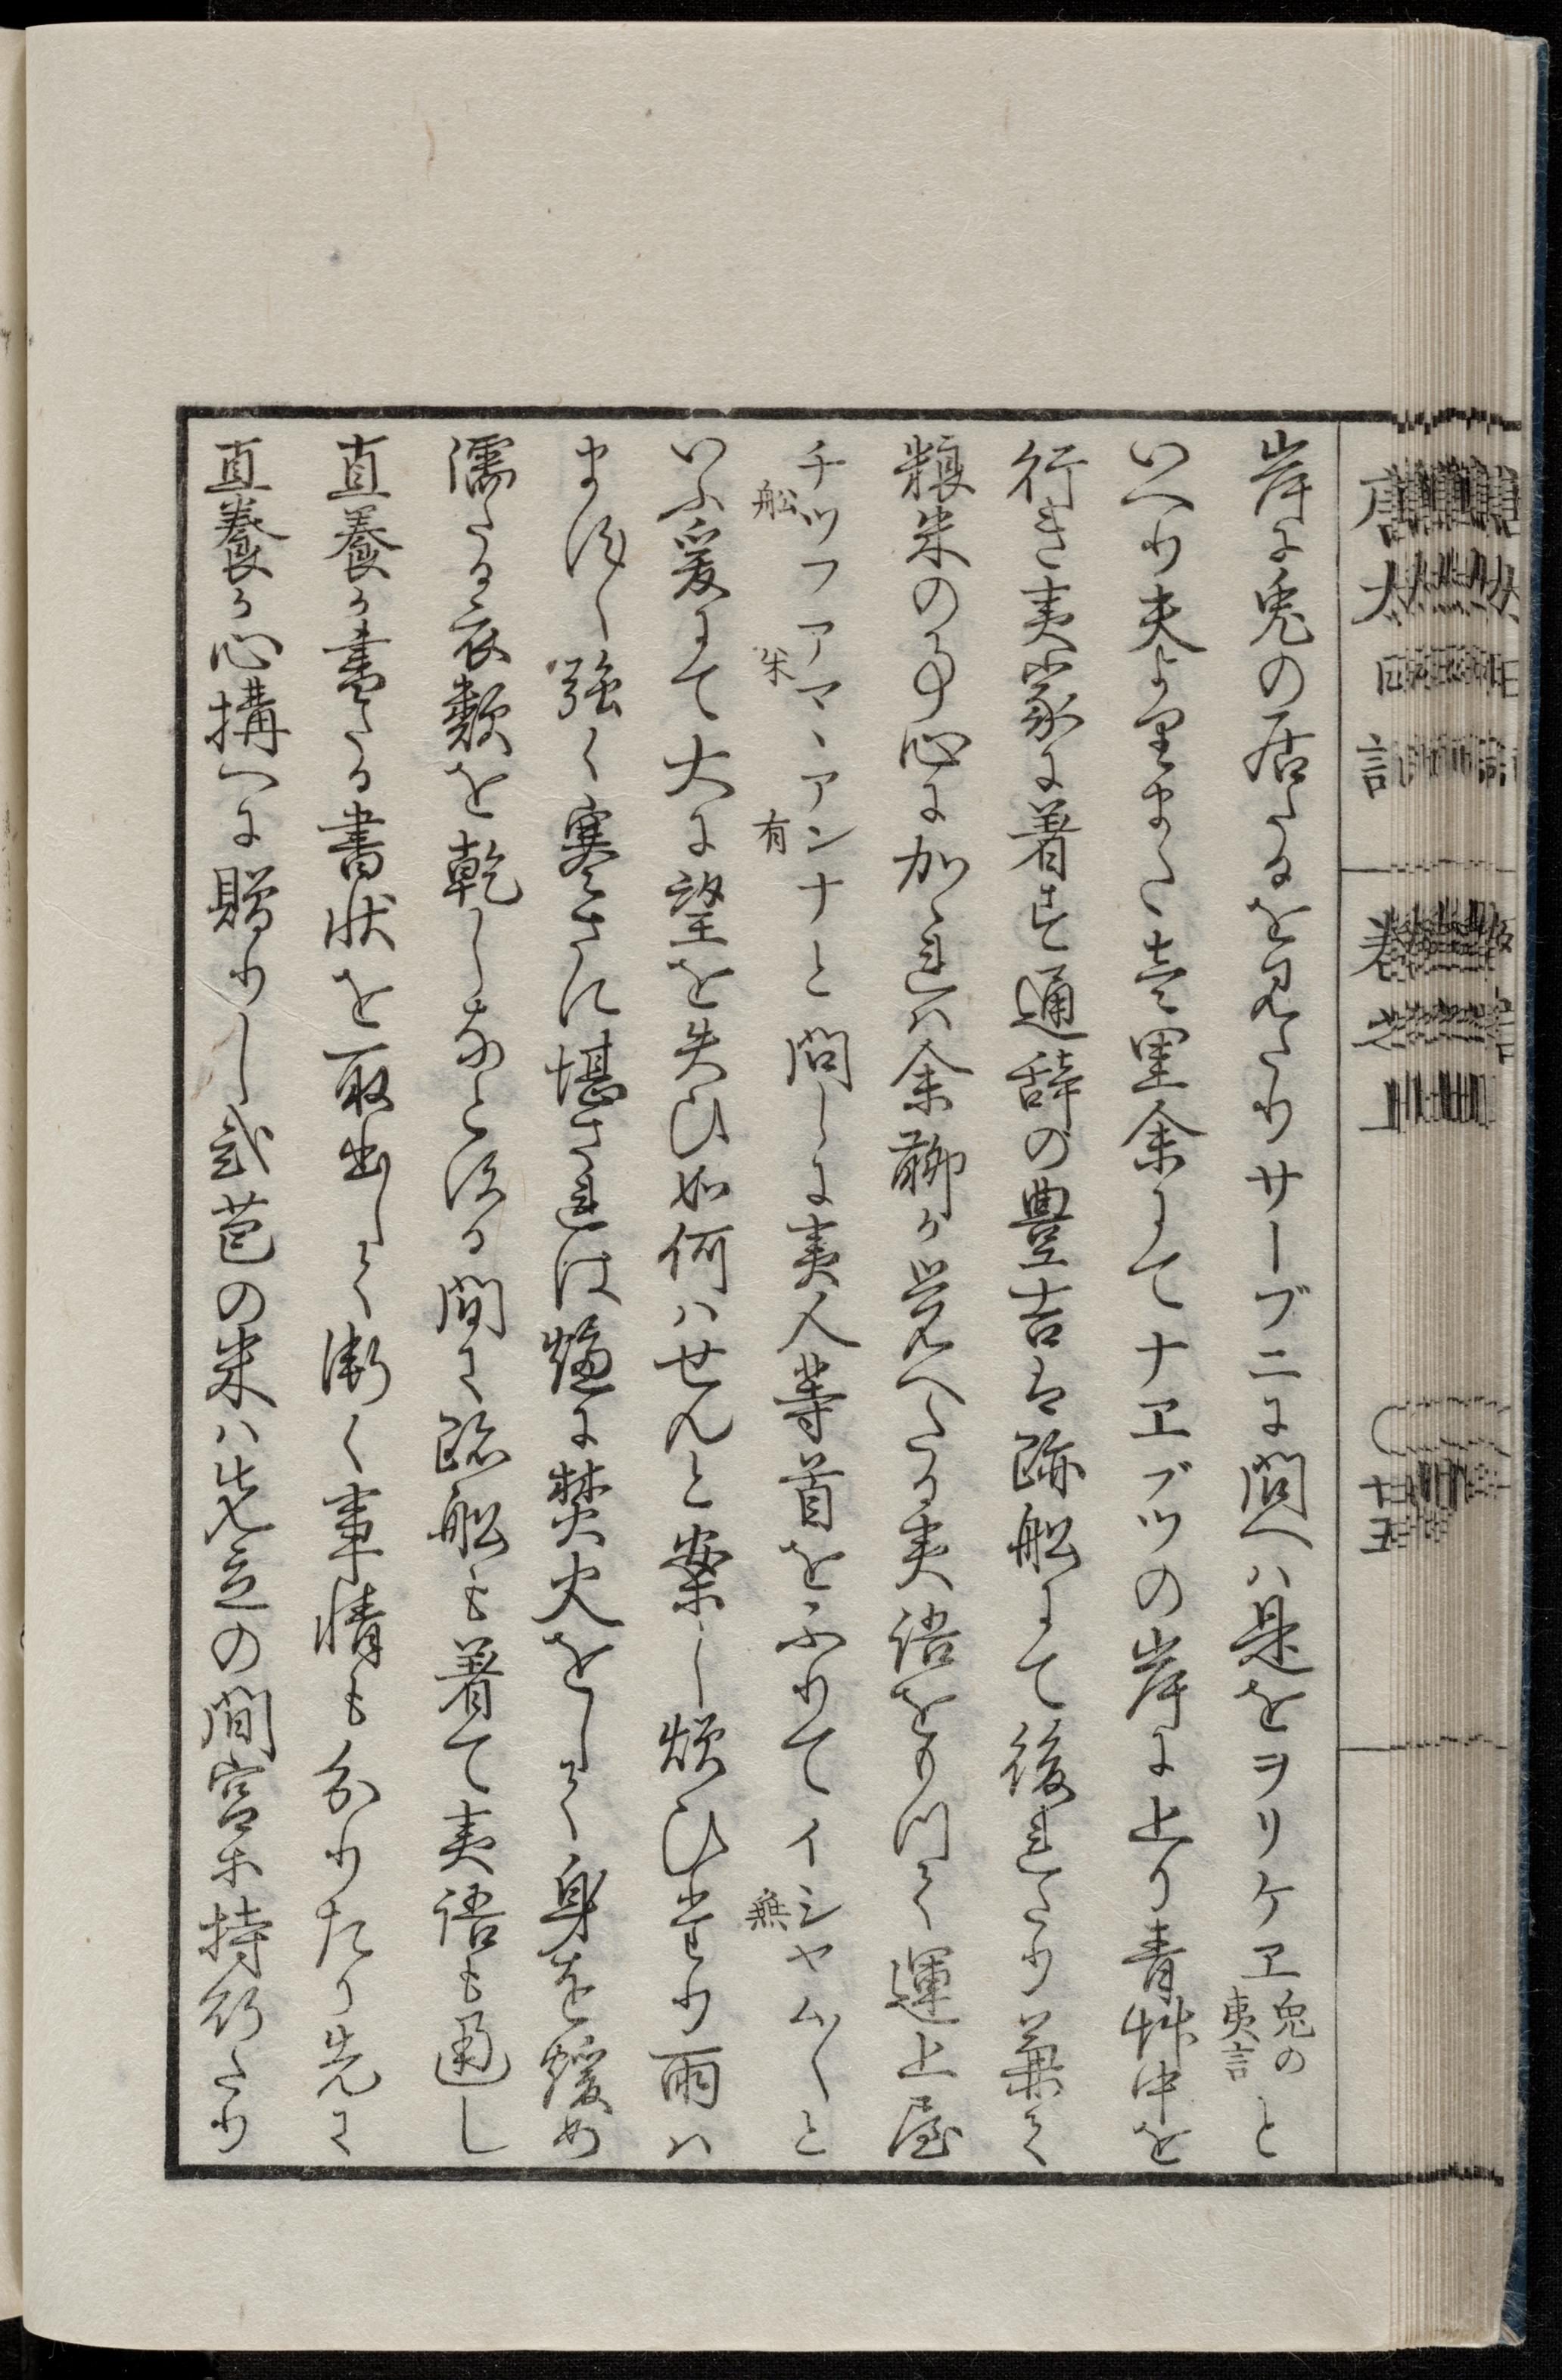 唐太日記 巻之上 ○廿五
岸に兎の居たるを見たりサーブニに問へハ是をヲリケヱ兎の夷言と
いへり夫より里また壱里余にてナヱブツの岸に上り青艸中を
行き夷家に着す通辞の豊吉は跡舩にて後れたり兼て
粮米の事心に加ゝれハ余聊か覚へたる夷語をもつて運上屋
チツフ舩アマヽ米アンナ有と問しに夷人等首をふりてイシヤム無〱と
いふ爰にて大に望を失ひ如何ハせんと案し煩ひ居り雨ハ
ます〱強く寒さに堪されは爐に焚火をして身を煖め
濡たる衣類を乾しなとする間に跡舩も着て夷語も通し
直養か書たる書状を取出して漸く事情も分りたり先に
直養か心構へに贈りし弐苞の米ハ先立の間宮等持行たり